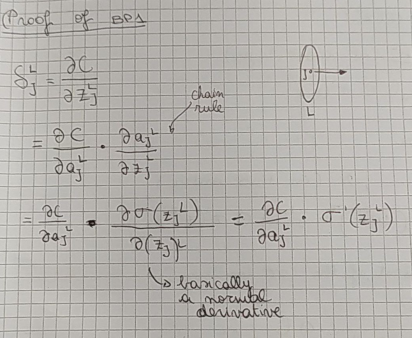 Proof of BP1
δ_j^L = ∂C / ∂z_j^L
= ∂C / ∂a_j^L · ∂a_j^L / ∂z_j^L
chain
rule
j
L
= ∂C / ∂a_j^L · ∂σ(z_j^L) / ∂(z_j)^L = ∂C / ∂a_j^L · σ'(z_j^L)
basically
a normal
derivative